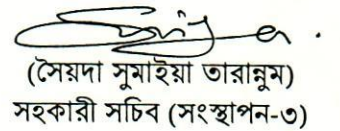 (সৈয়দা সুমাইয়া তারান্নুম)
সহকারী সচিব (সংস্থাপন-৩)